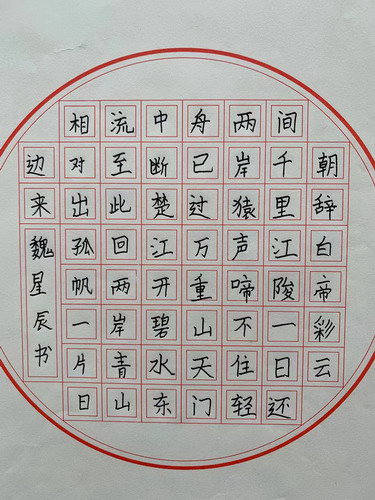 朝辞白帝彩云
间千里江陵一日还
两岸猿声啼不住轻
舟已过万重山天门
中断楚江开碧水东
流至此回两岸青山
相对出孤帆一片日
边来
魏星辰书